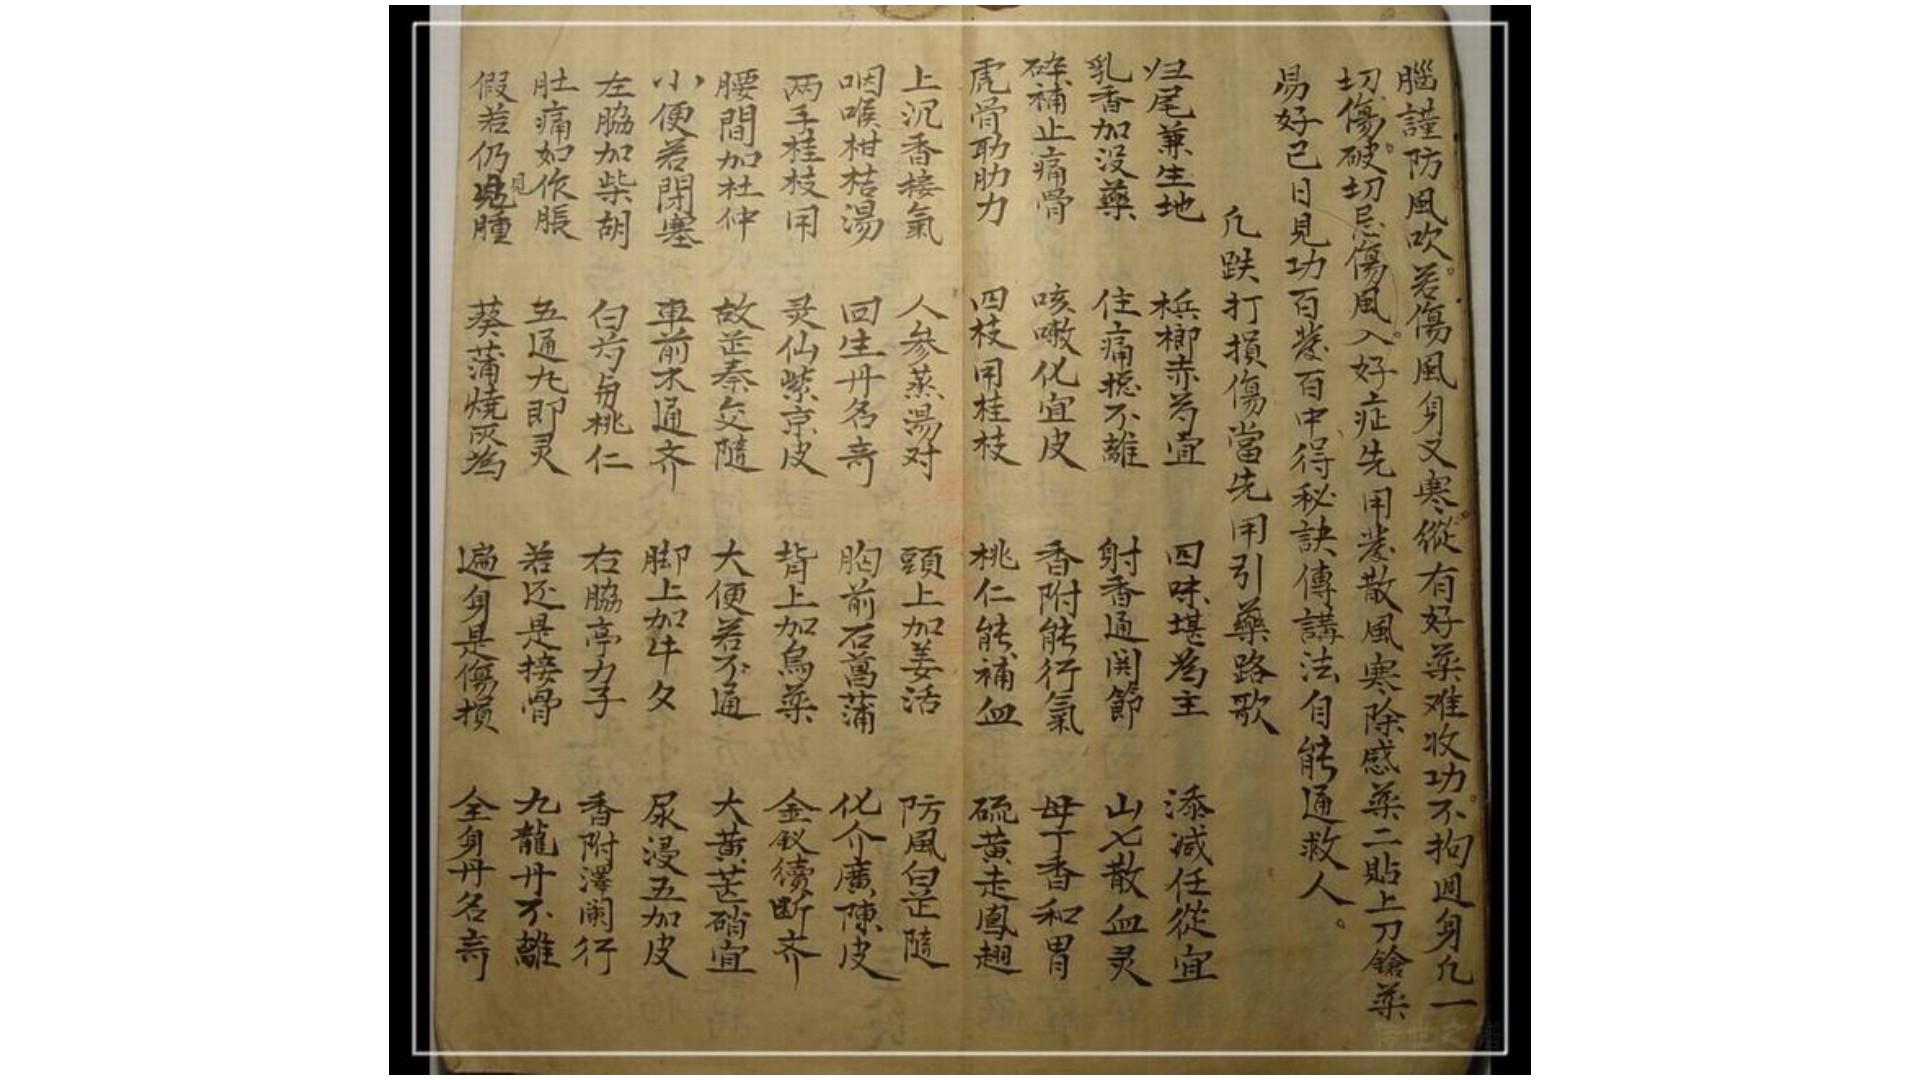 腦謹防風吹。若傷風身又寒。縱有好薬难收功。不拘週身凢一
切傷。破切忌傷風入。好症先用發散風寒除感薬二貼上刀鎗薬
易好已日見功百發百中得秘訣傳講法自能通救人。
凢跌打損傷當先用引藥路歌
归尾兼生地 梹榔赤芍宜 四味堪為主 添减任從宜
乳香加没藥 住痛揔不離 射香通関節 山七散血灵
碎補止痛骨 咳嗽化宜皮 香附能行氣 母丁香和胃
虎骨助肋力 四枝用桂枝 桃仁能補血 硫黄走鳳翅
上沉香接氣 人參蒸湯对 頭上加羌活 防風白芷隨
咽喉柑桔湯 回生丹名竒 胸前石菖蒲 化介廣陳皮
两手桂枝用 灵仙紫京皮 背上加烏薬 金釵續断齐
腰間加杜仲 故芷秦交隨 大便若不通 大黄芒硝宜
小便若閉塞 車前木通齐 脚上加牛夕 尿浸五加皮
左脇加柴胡 白芍與桃仁 右脇亭力子 香附澤闌行
肚痛如作脹 五通九即灵 若还是接骨 九龍丹不離
假若仍見腫 葵蒲燒灰為 遍身是傷損 全身丹名竒